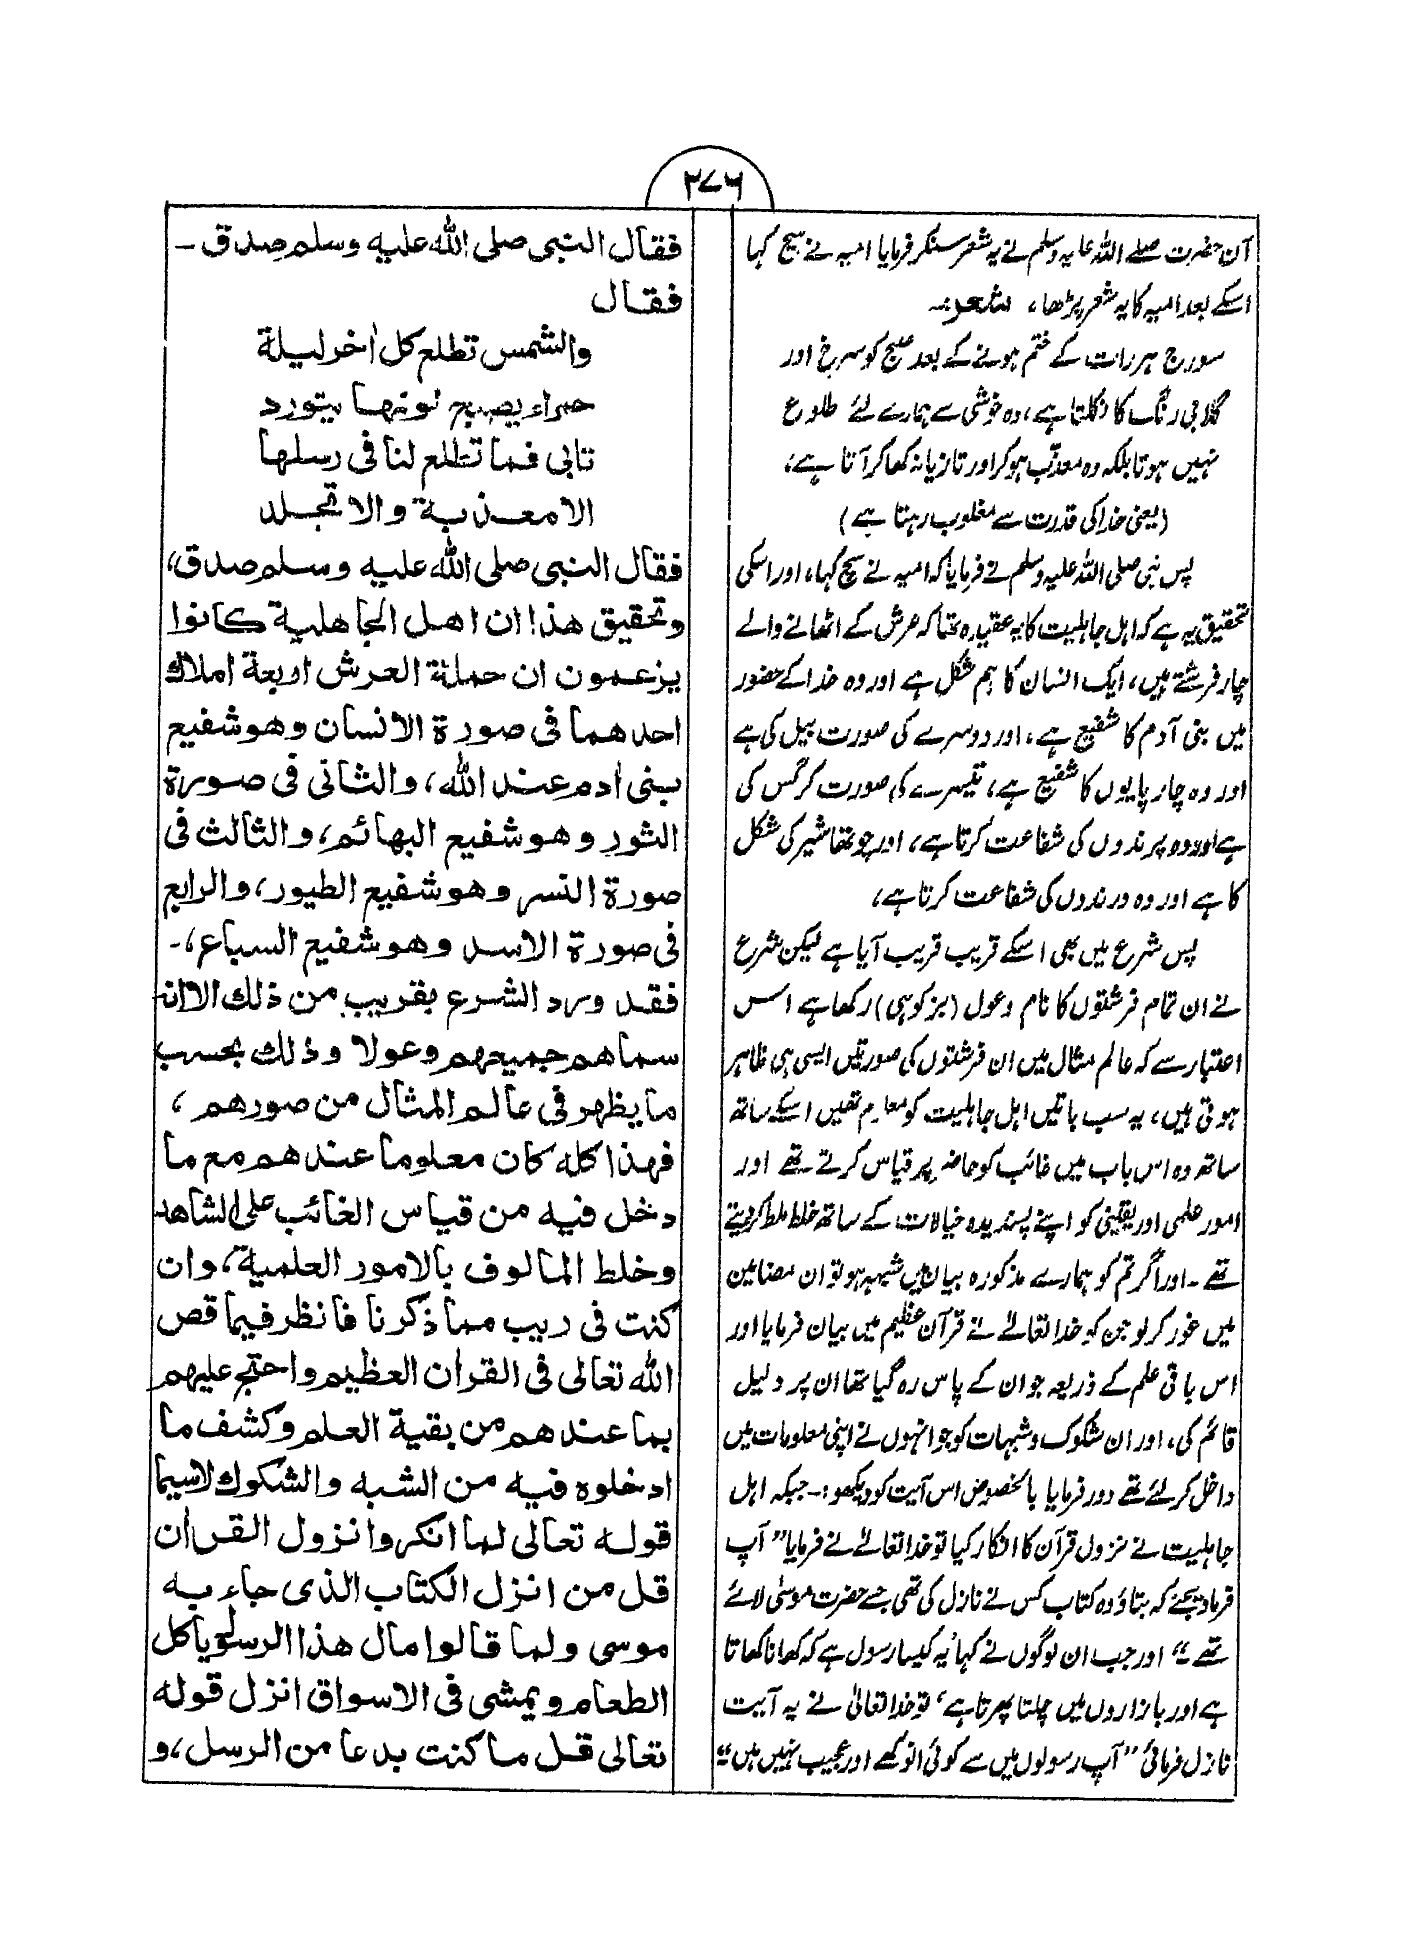 ٢٧٦
آں حضرت صلے اللہ علیہ وسلم نے یہ شعر سنکر فرمایا امیہ نے سچ کہا
اسکے بعد امیہ کا یہ شعر پڑھا، شعر:۔
سورج ہر رات کے ختم ہونے کے بعد صبح کو سرخ اور
گلابی رنگ کا نکلتا ہے، وہ خوشی سے ہمارے لئے طلوع
نہیں ہوتا بلکہ وہ معذّب ہو کر اور تازیانہ کھا کر آتا ہے،
(یعنی خدا کی قدرت سے مغلوب رہتا ہے)
پس نبی صلی اللہ علیہ وسلم نے فرمایا کہ امیہ نے سچ کہا، اور اسکی
تحقیق یہ ہے کہ اہل جاہلیت کا یہ عقیدہ تھا کہ عرش کے اٹھانے والے
چار فرشتے ہیں، ایک انسان کا ہم شکل ہے اور وہ خدا کے حضور
میں بنی آدم کا شفیع ہے، اور دوسرے کی صورت بیل کی ہے
اور وہ چار پایوں کا شفیع ہے، تیسرے کی صورت کرگس کی
ہے اور وہ پرندوں کی شفاعت کرتا ہے، اور چوتھا شیر کی شکل
کا ہے اور وہ درندوں کی شفاعت کرتا ہے،
پس شرع میں بھی اسکے قریب قریب آیا ہے لیکن شرع
نے ان تمام فرشتوں کا نام وعول (بز کوہی) رکھا ہے اس
اعتبار سے کہ عالم مثال میں ان فرشتوں کی صورتیں ایسی ہی ظاہر
ہوتی ہیں، یہ سب باتیں اہل جاہلیت کو معلوم تھیں اسکے ساتھ
ساتھ وہ اس باب میں غائب کو حاضر پر قیاس کرتے تھے اور
امور علمی اور یقینی کو اپنے پسندیدہ خیالات کے ساتھ خلط ملط کر دیتے
تھے۔ اور اگر تم کو ہمارے مذکورہ بیان میں شبہہ ہو تو ان مضامین
میں غور کر لو جن کو خدا تعالےٰ نے قرآن عظیم میں بیان فرمایا اور
اس باقی علم کے ذریعہ جو ان کے پاس رہ گیا تھا ان پر دلیل
قائم کی، اور ان شکوک و شبہات کو جو انہوں نے اپنی معلومات میں
داخل کر لئے تھے دور فرمایا بالخصوص اس آیت کو دیکھو:۔ جبکہ اہل
جاہلیت نے نزول قرآن کا انکار کیا تو خدا تعالےٰ نے فرمایا "آپ
فرما دیجئے کہ بتاؤ وہ کتاب کس نے نازل کی تھی جسے حضرت موسیٰ لائے
تھے" اور جب ان لوگوں نے کہا 'یہ کیسا رسول ہے کہ کھانا کھاتا
ہے اور بازاروں میں چلتا پھرتا ہے' تو خدا تعالیٰ نے یہ آیت
نازل فرمائی "آپ رسولوں میں سے کوئی انوکھے اور عجیب نہیں ہیں"
فقال النبی صلی اللہ علیہ وسلم صدق۔
فقال
والشمس تطلع کل اٰخر لیلۃ
حمراء یصبح لونہا یتورد
تابی فما تطلع لنا فی رسلہا
الا معذبۃ والا تجلد
فقال النبی صلی اللہ علیہ وسلم صدق،
وتحقیق ھذا ان اھل الجاھلیۃ کانوا
یزعمون ان حملۃ العرش اربعۃ املاک
احدھما فی صورۃ الانسان وھو شفیع
بنی اٰدم عند اللہ، والثانی فی صورۃ
الثور وھو شفیع البہائم، والثالث فی
صورۃ النسر وھو شفیع الطیور، والرابع
فی صورۃ الاسد وھو شفیع السباع،۔
فقد ورد الشرع بقریب من ذلک الا انہ
سماھم جمیعہم وعولا وذلک بحسب
ما یظہر فی عالم المثال من صورھم،
فہذا کلہ کان معلوما عندھم مع ما
دخل فیہ من قیاس الغائب علی الشاھد
وخلط المالوف بالامور العلمیۃ، وان
کنت فی ریب مما ذکرنا فانظر فیما قص
اللہ تعالی فی القراٰن العظیم واحتج علیہم
بما عندھم من بقیۃ العلم وکشف ما
ادخلوہ فیہ من الشبہ والشکوک لاسیما
قولہ تعالی لما انکروا نزول القراٰن
قل من انزل الکتاب الذی جاء بہ
موسی ولما قالوا مال ھذا الرسول یاکل
الطعام ویمشی فی الاسواق انزل قولہ
تعالی قل ما کنت بدعا من الرسل، و